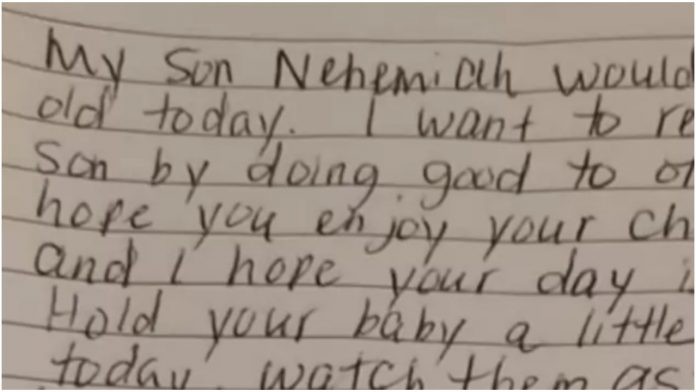 My Son Nehemiah would
old today. I want to re
Son by doing good to ot
hope you enjoy your ch
and I hope your day i
Hold your baby a little
today, watch them as